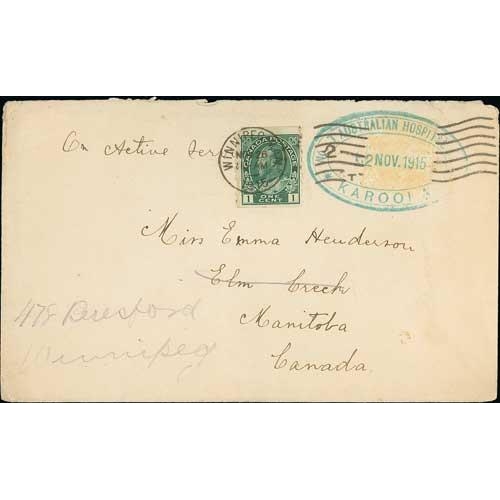 On Active Ser
WINNIPEG
CANADA POSTAGE
1 ONE CENT 1
AUSTRALIAN HOSPIT
2 NOV. 1915
KAROOLA
2
Miss Emma Henderson
Elm Creek
Manitoba
Canada.
478 Beresford
Winnipeg